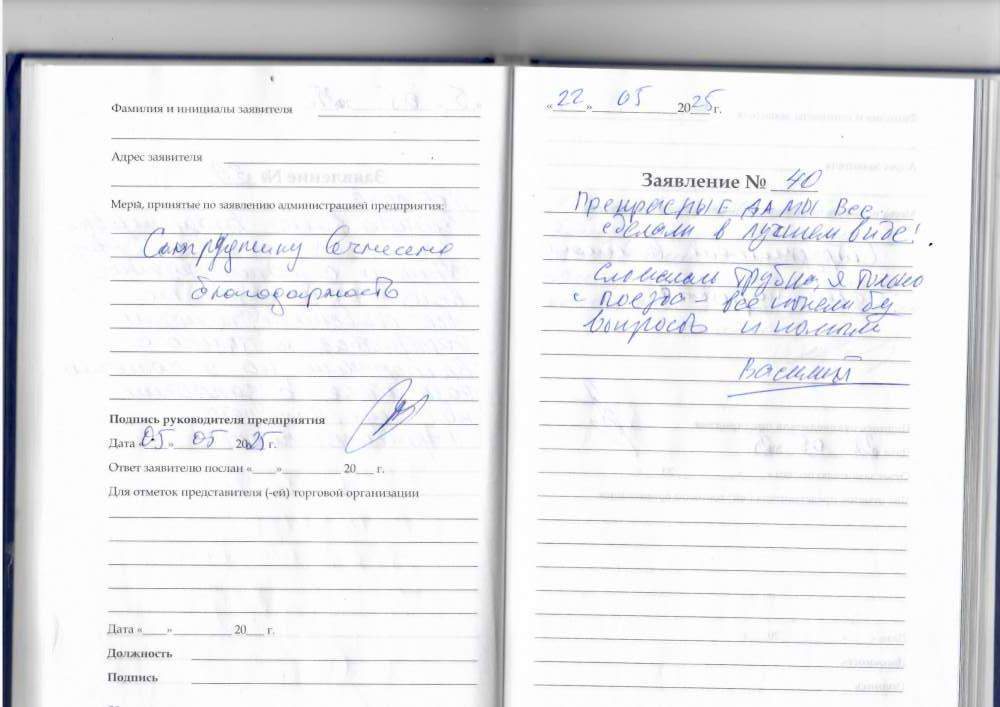 Фамилия и инициалы заявителя
Адрес заявителя
Меры, принятые по заявлению администрацией предприятия:
Сотруднику
благодарность
Подпись руководителя предприятия
Дата «05» 05 2025 г.
Ответ заявителю послан «____»__________ 20___ г.
Для отметок представителя (-ей) торговой организации
Дата «____»__________ 20___ г.
Должность
Подпись
«22» 05 2025 г.
Заявление № 40
Прекрасные дамы все
сделали в лучшем виде!
Сломалась трубка, я только
с поезда - все
вопросы и помогли
Василий